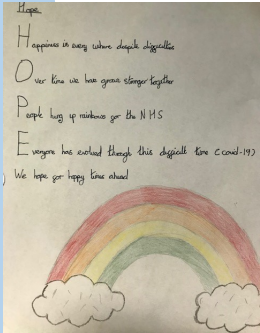 Hope
Happiness is every where despite difficulties
Over time we have grown stronger together
People hung up rainbows for the NHS
Everyone has evolved through this difficult time (covid-19)
We hope for happy times ahead